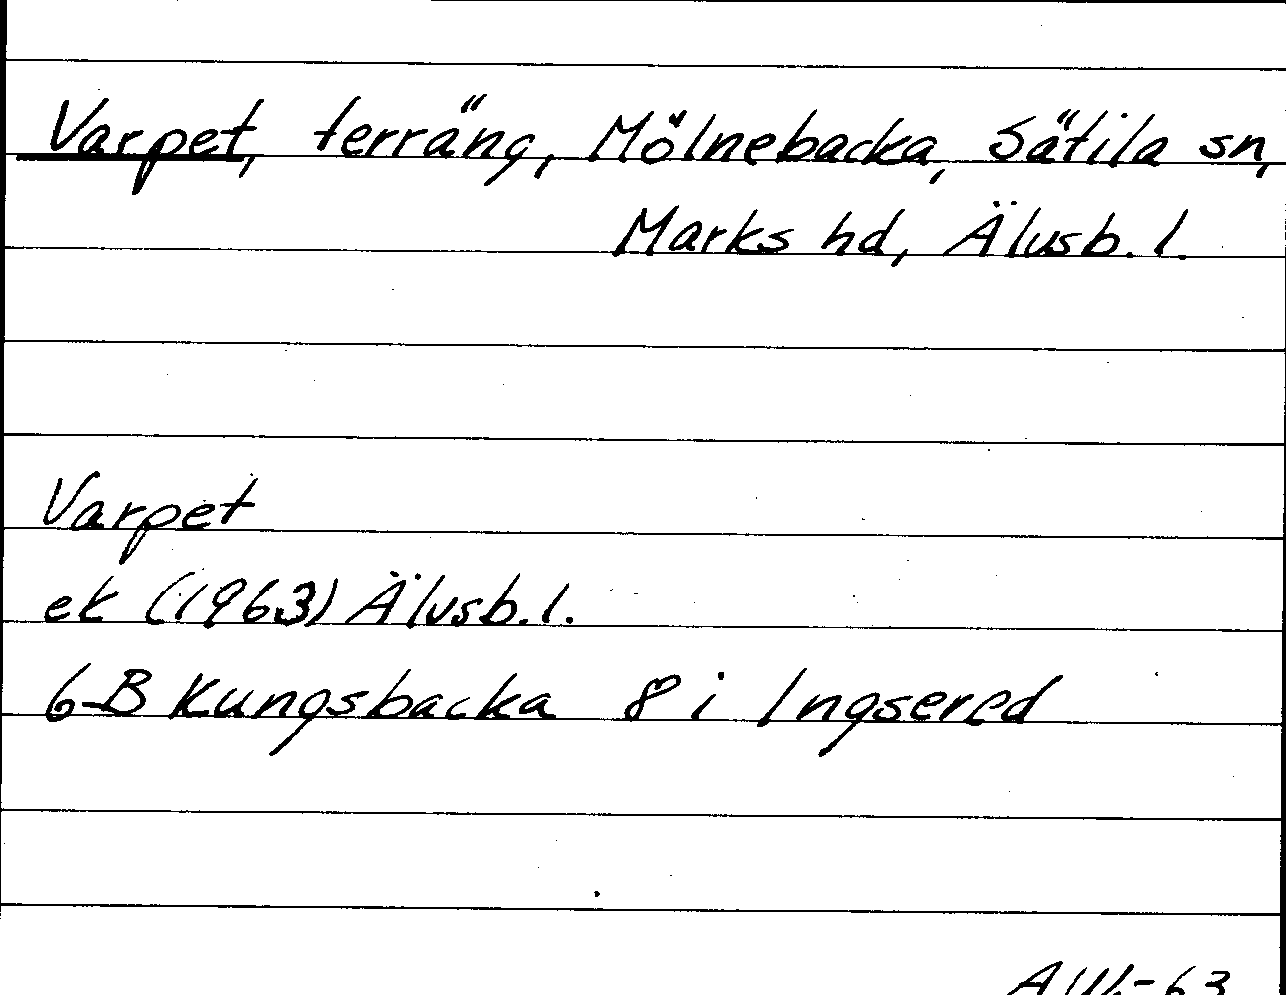 Varpet, terräng, Mölnebacka, Sätila sn,
Marks hd, Älvsb. l.
Varpet
ek (1963) Älvsb. l.
6-B Kungsbacka 8 i Ingsered